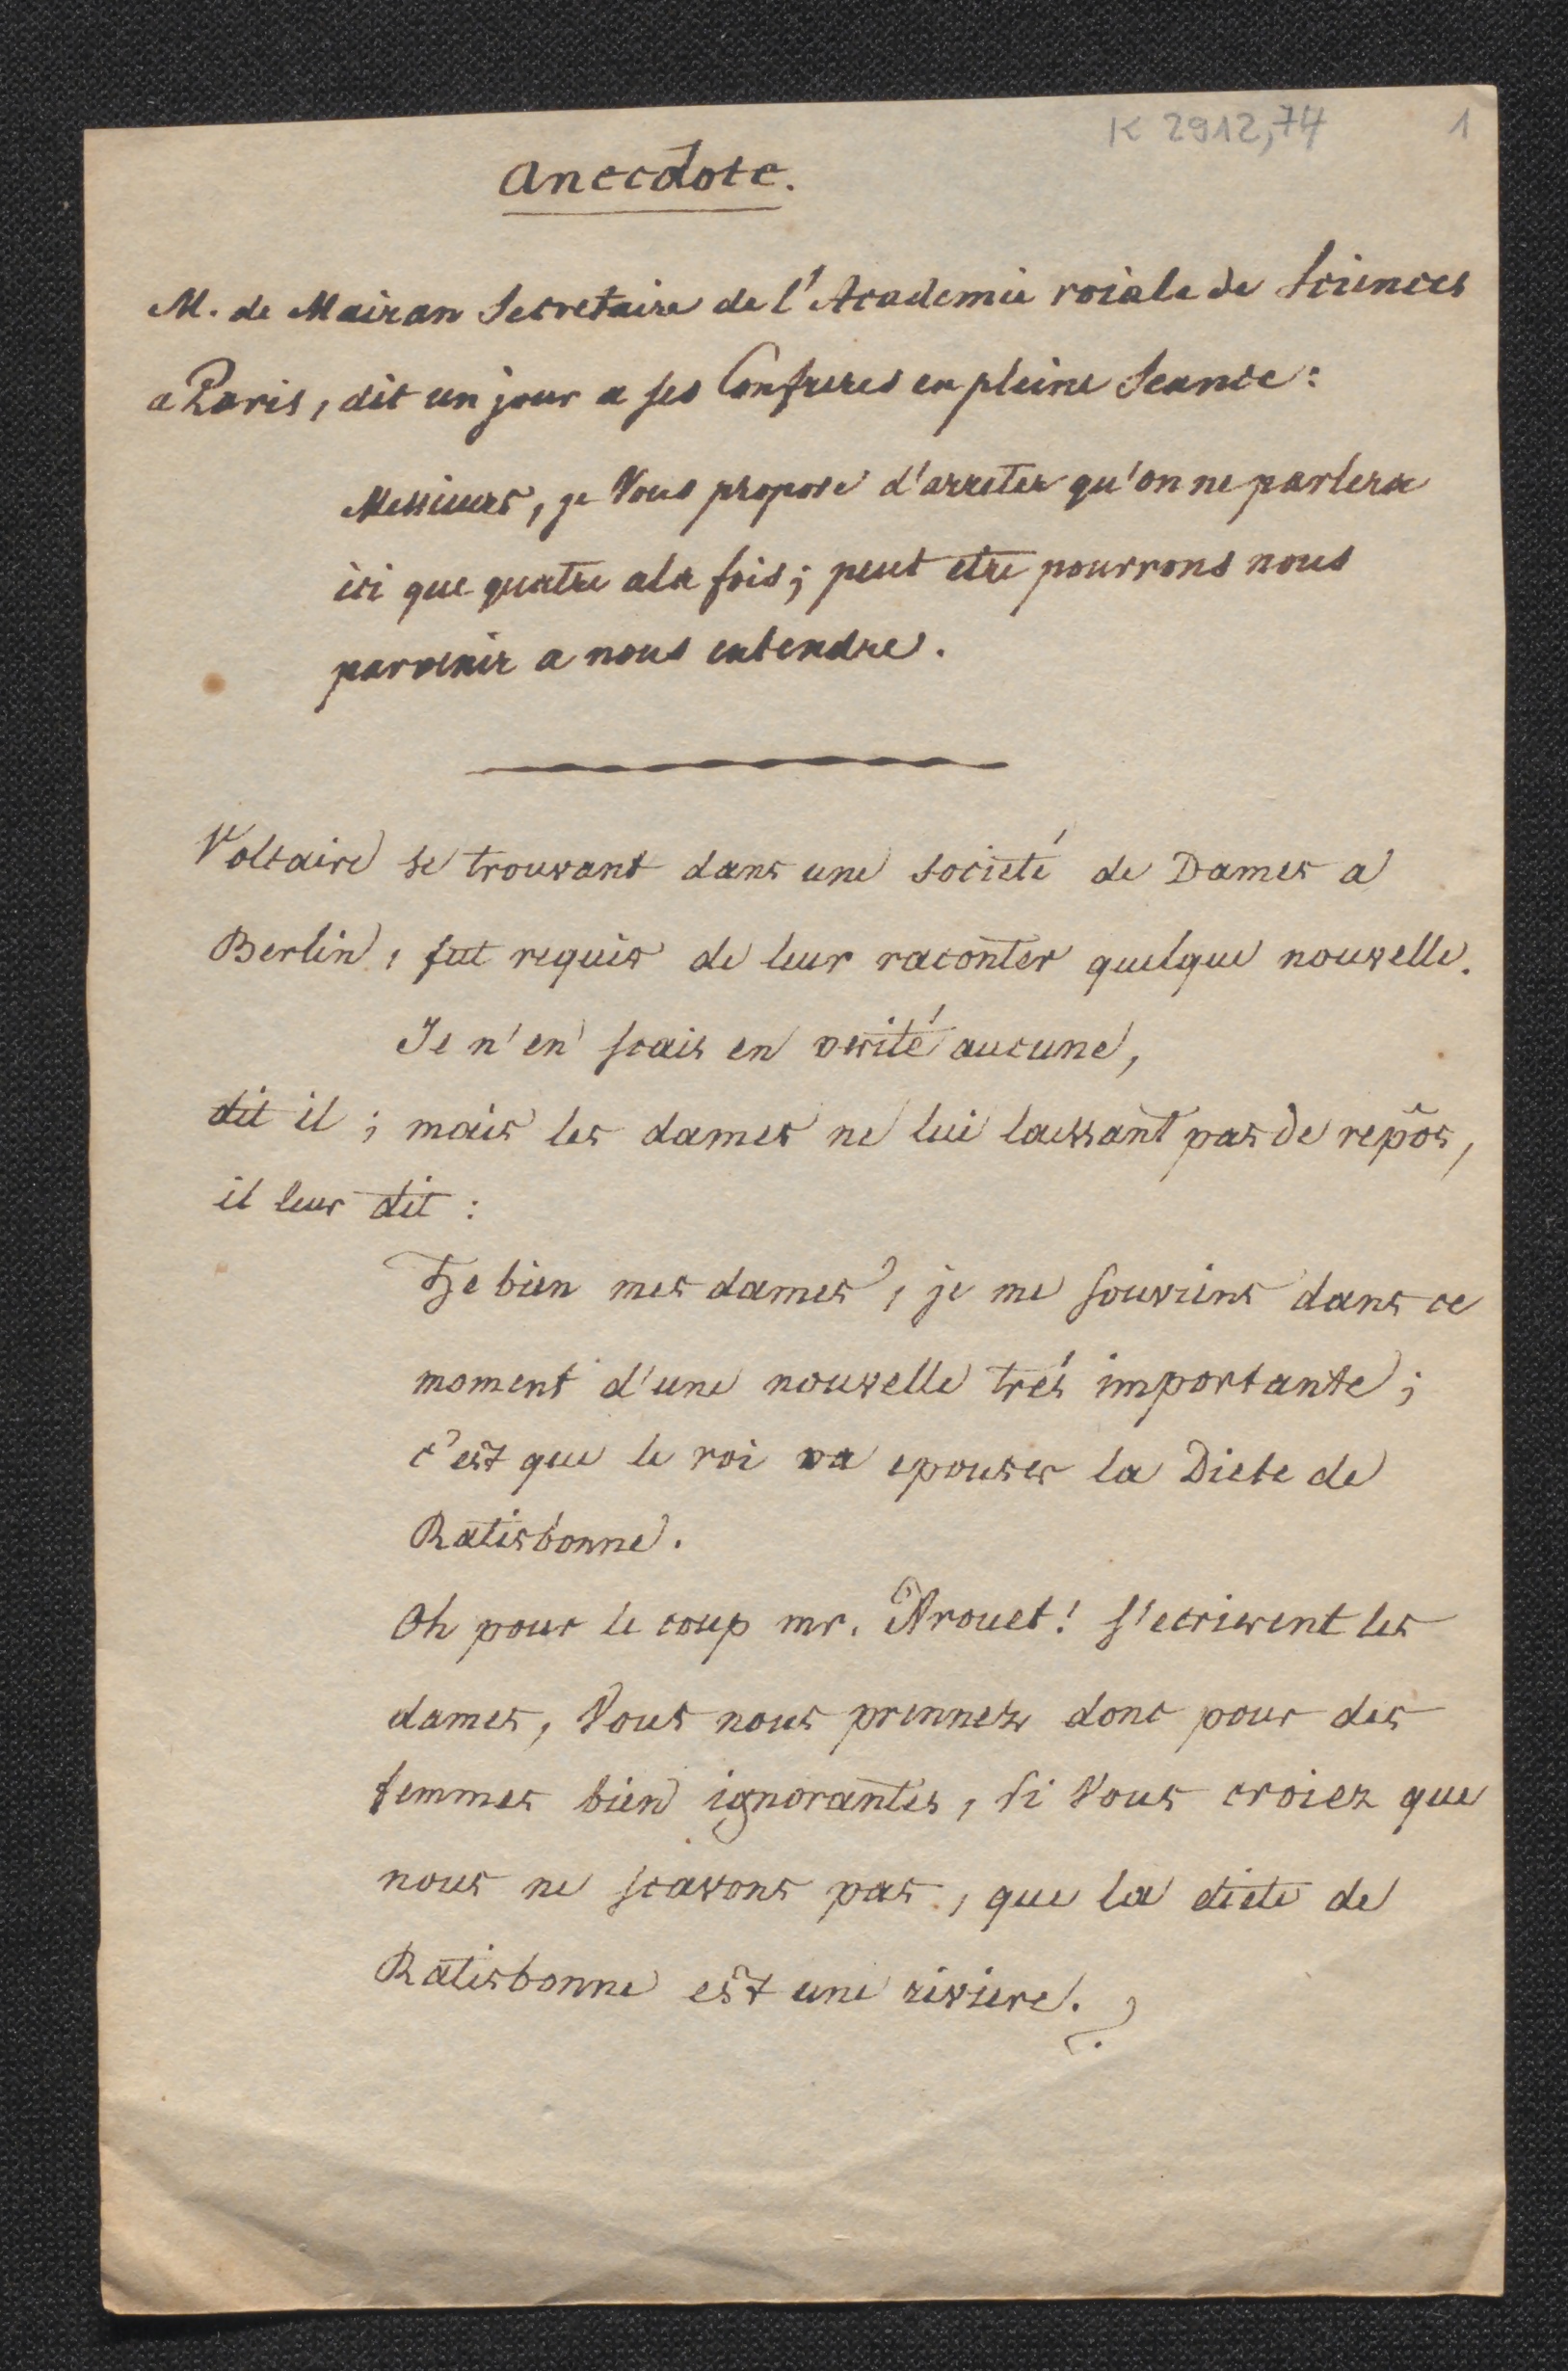 K 2912,74 1
Anecdote.
M. de Mairan Secretaire de l'Academie roiale de Sciences
a Paris, dit un jour a ses Confreres en pleine Seance:
Messieurs, je Vous propose d'arreter qu'on ne parlera
ici que quatre a la fois; peut etre pourrons nous
parvenir a nous entendre.
Voltaire se trouvant dans une societé de Dames a
Berlin, fut requis de leur raconter quelque nouvelle.
Je n'en scais en verité aucune,
dit il; mais les dames ne lui laissant pas de repôs,
il leur dit:
He bien mes dames, je me souviens dans ce
moment d'une nouvelle trés importante;
c'est que le roi va epouser la Diete de
Ratisbonne.
Oh pour le coup mr. Arouet! s'ecrierent les
dames, Vous nous prennez donc pour des
femmes bien ignorantes, si Vous croiez que
nous ne scavons pas, que la diete de
Ratisbonne est une riviere.?